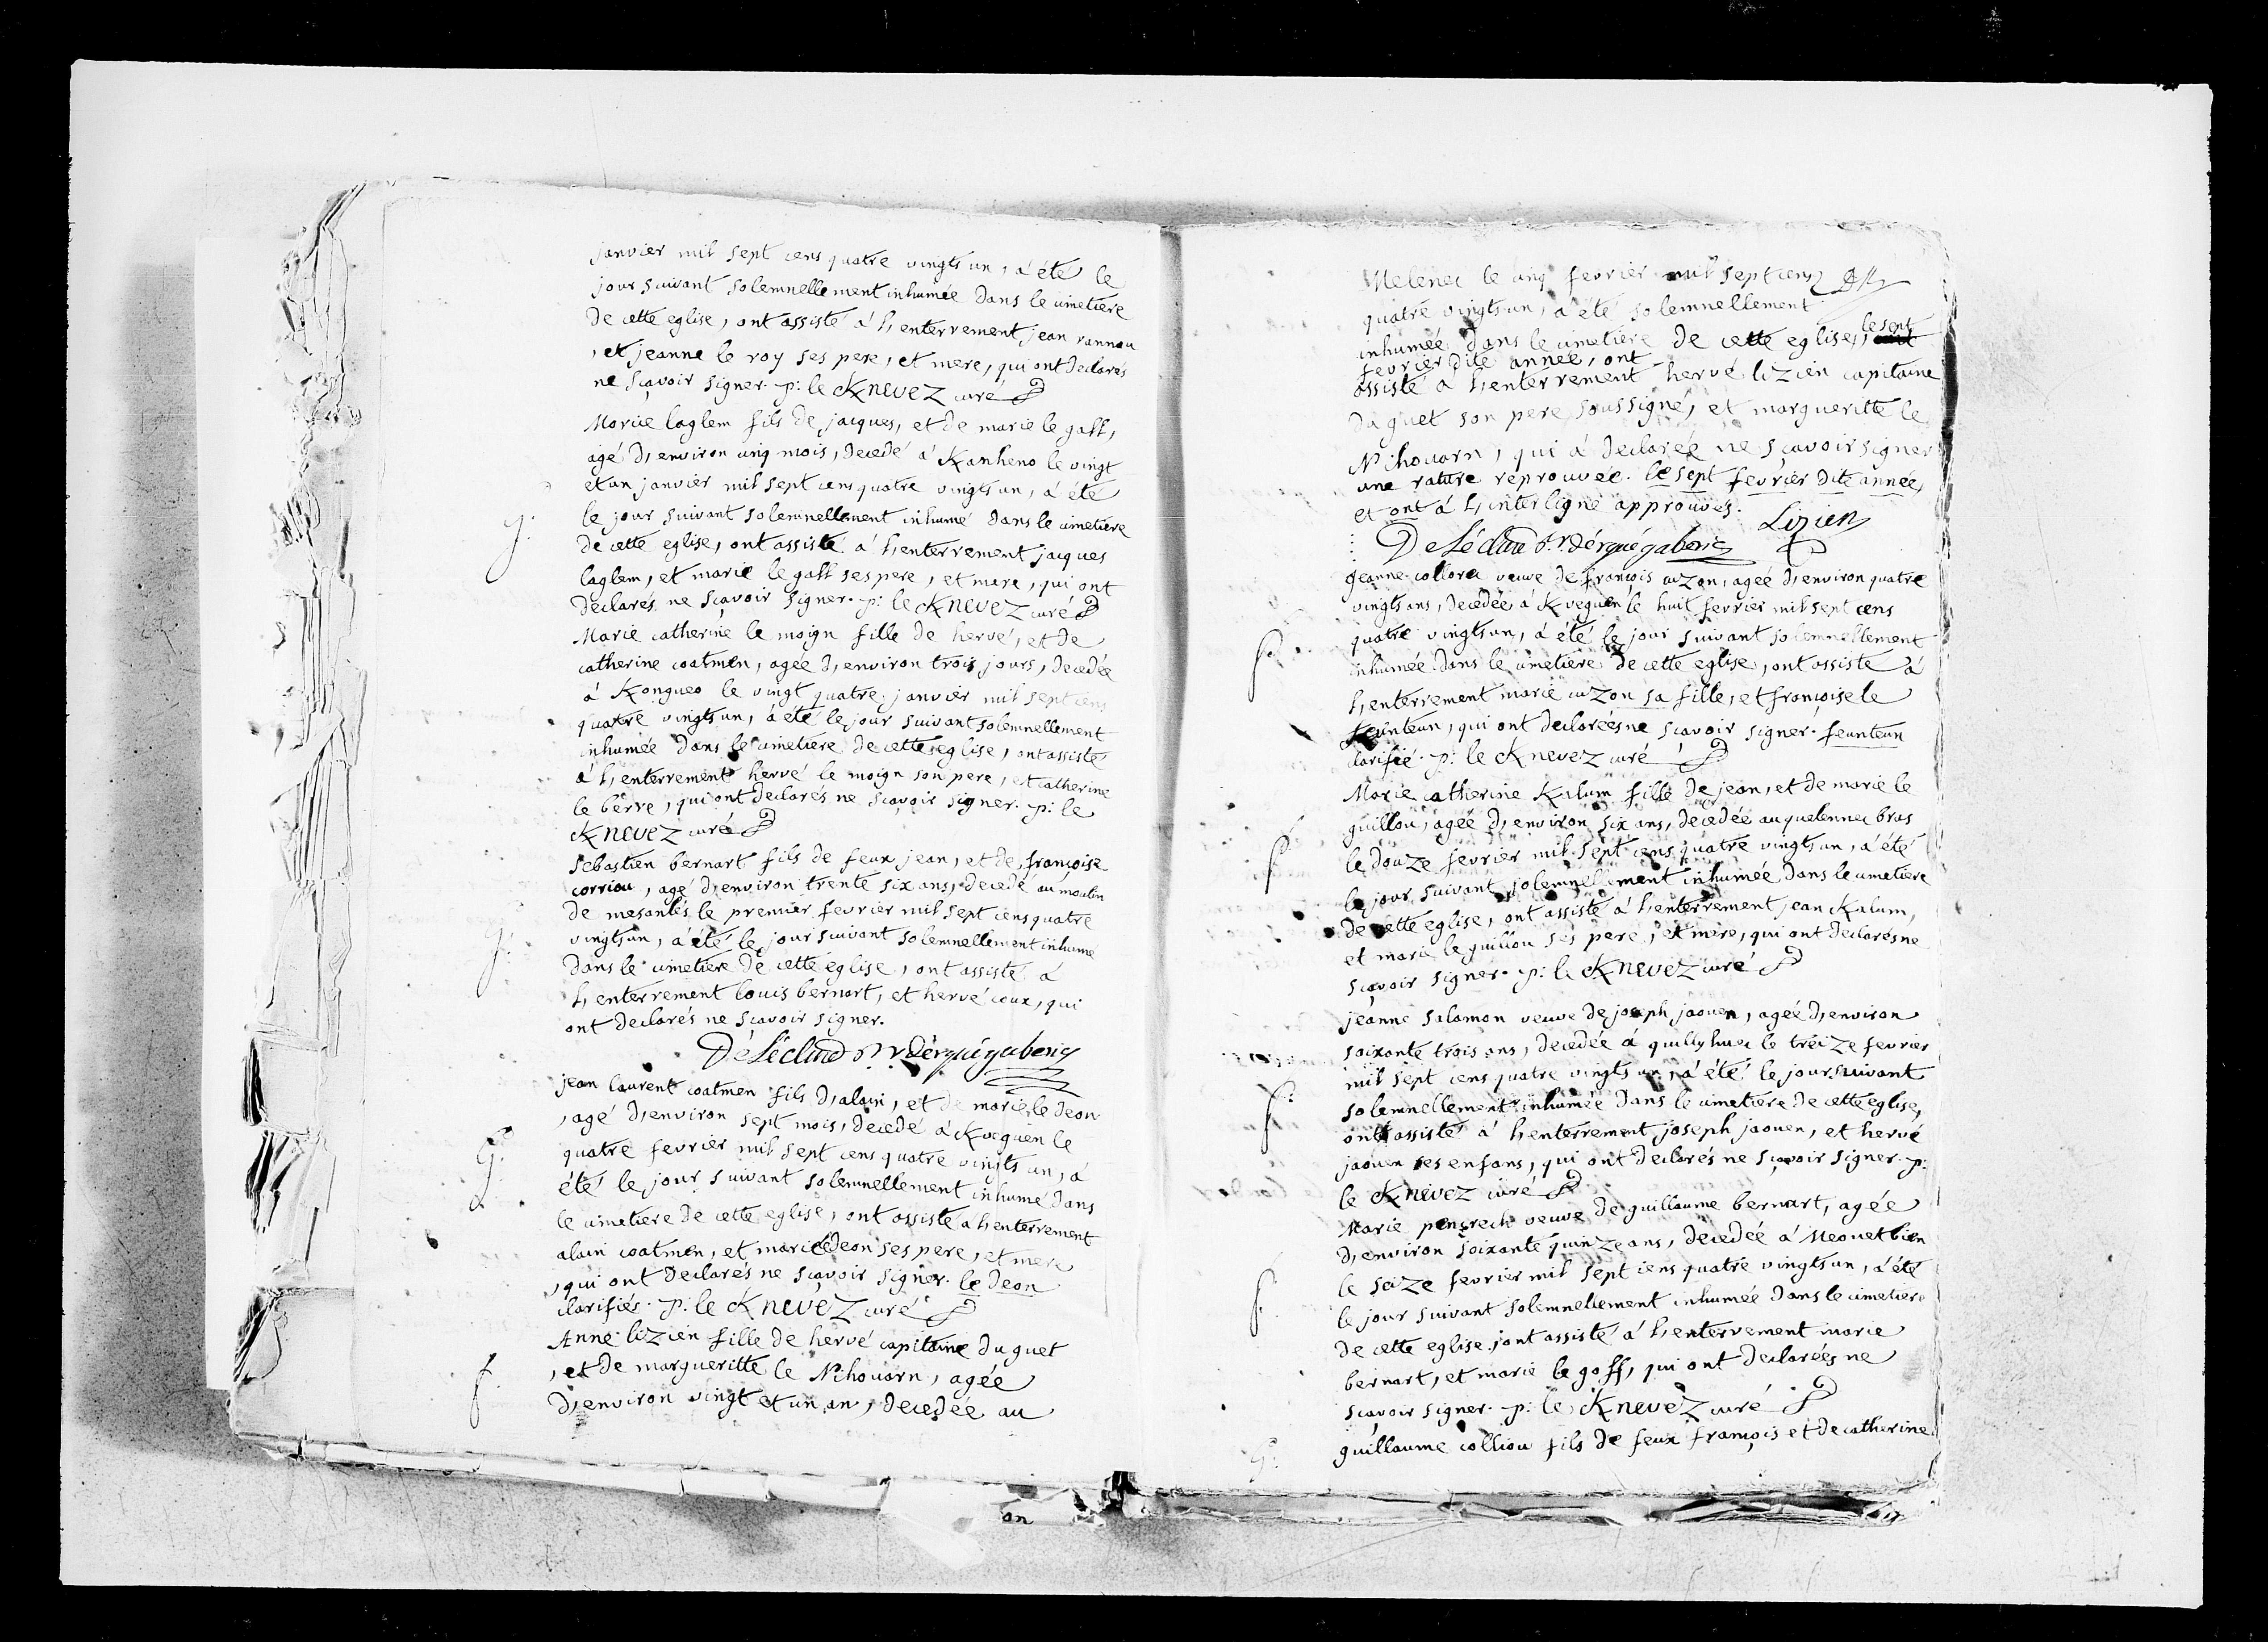 janvier mil sept cens quatre vingts un, à été le
jour suivant solemnellement inhumée dans le cimetiere
de cette eglise, ont assisté à l,enterrement jean rannou
, et jeanne le roy ses pere, et mere, qui ont declarés
ne sçavoir signer. p: le Knevez curé
Marie laglem fils de jacques, et de marie le gall,
agé d,environ cinq mois, decedé à Kanheno le vingt
et un janvier mil sept cens quatre vingts un, à été
g.
le jour suivant solemnellement inhumé dans le cimetiere
de cette eglise, ont assisté à l,enterrement jacques
laglem, et marie le gall ses pere, et mere, qui ont
declarés ne sçavoir signer. p: le Knevez curé
Marie catherine le moign fille de hervé, et de
catherine coatmen, agée d,environ trois jours, decedée
à Kongueo le vingt quatre janvier mil sept cens
quatre vingts un, à été le jour suivant solemnellement
inhumée dans le cimetiere de cette eglise, ont assisté
à l,enterrement hervé le moign son pere, et catherine
le berre, qui ont declarés ne sçavoir signer. p: le
Knevez curé
Sebastien bernart fils de feux jean, et de françoise
corriou, agé d,environ trente six ans, decedé au moulin
de mesanlés le premier fevrier mil sept cens quatre
g.
vingts un, à été le jour suivant solemnellement inhumé
dans le cimetiere de cette eglise, ont assisté à
l,enterrement louis bernart, et hervé coux, qui
ont declarés ne sçavoir signer.
De Léclud r. d'érgué gaberic
jean laurent coatmen fils d,alain, et de marie le deon
, agé d,environ sept mois, decedé à Kveguen le
g.
quatre fevrier mil sept cens quatre vingts un, à
été le jour suivant solemnellement inhumé dans
le cimetiere de cette eglise, ont assisté à l,enterrement
alain coatmen, et marie le deon ses pere, et mere
, qui ont declarés ne sçavoir signer. le deon
clarifiés. p: le Knevez curé
Anne lizien fille de hervé capitaine du guet
f.
, et de margueritte le Nihouarn, agée
d,environ vingt et un an, decedée au
Melenec le cinq fevrier mil sept cens
quatre vingts un, à été solemnellement
inhumée dans le cimetiere de cette eglise, le sept
fevrier dite année, ont
assisté à l,enterrement hervé lizien capitaine
du guet son pere soussigné, et margueritte le
Nihouarn, qui à declarée ne sçavoir signer
une rature reprouvée. le sept fevrier dite année,
et ont à l,interligne approuvés.
Lizien
De Léclud r. d'érgué gaberic
jeanne collorec veuve de françois cuzon, agée d,environ quatre
vingts ans, decedée à Kveguen le huit fevrier mil sept cens
f.
quatre vingts un, à été le jour suivant solemnellement
inhumée dans le cimetiere de cette eglise, ont assisté à
l,enterrement marie cuzon sa fille, et françoise le
feunteun, qui ont declarées ne sçavoir signer. feunteun
clarifié. p: le Knevez curé
Marie catherine Kalum fille de jean, et de marie le
f.
guillou, agée d,environ six ans, decedée au quelennec bras
le douze fevrier mil sept cens quatre vingts un, à été
le jour suivant solemnellement inhumée dans le cimetiere
de cette eglise, ont assisté à l,enterrement jean Kalum,
et marie le guillou ses pere, et mere, qui ont declarés ne
sçavoir signer. p: le Knevez curé
jeanne salomon veuve de joseph jaouen, agée d,environ
soixante trois ans, decedée à quillyhuec le treize fevrier
mil sept cens quatre vingts un, à été le jour suivant
f.
solemnellement inhumée dans le cimetiere de cette eglise,
ont assisté à l,enterrement joseph jaouen, et hervé
jaouen ses enfans, qui ont declarés ne sçavoir signer. p:
le Knevez curé
Marie pensrech veuve de guillaume bernart, agée
d,environ soixante quinze ans, decedée à Meouet bien
f.
le seize fevrier mil sept cens quatre vingts un, à été
le jour suivant solemnellement inhumée dans le cimetiere
de cette eglise, ont assisté à l,enterrement marie
bernart, et marie le goff, qui ont declarées ne
sçavoir signer. p: le Knevez curé
g.
guillaume colliou fils de feux françois et de catherine
on